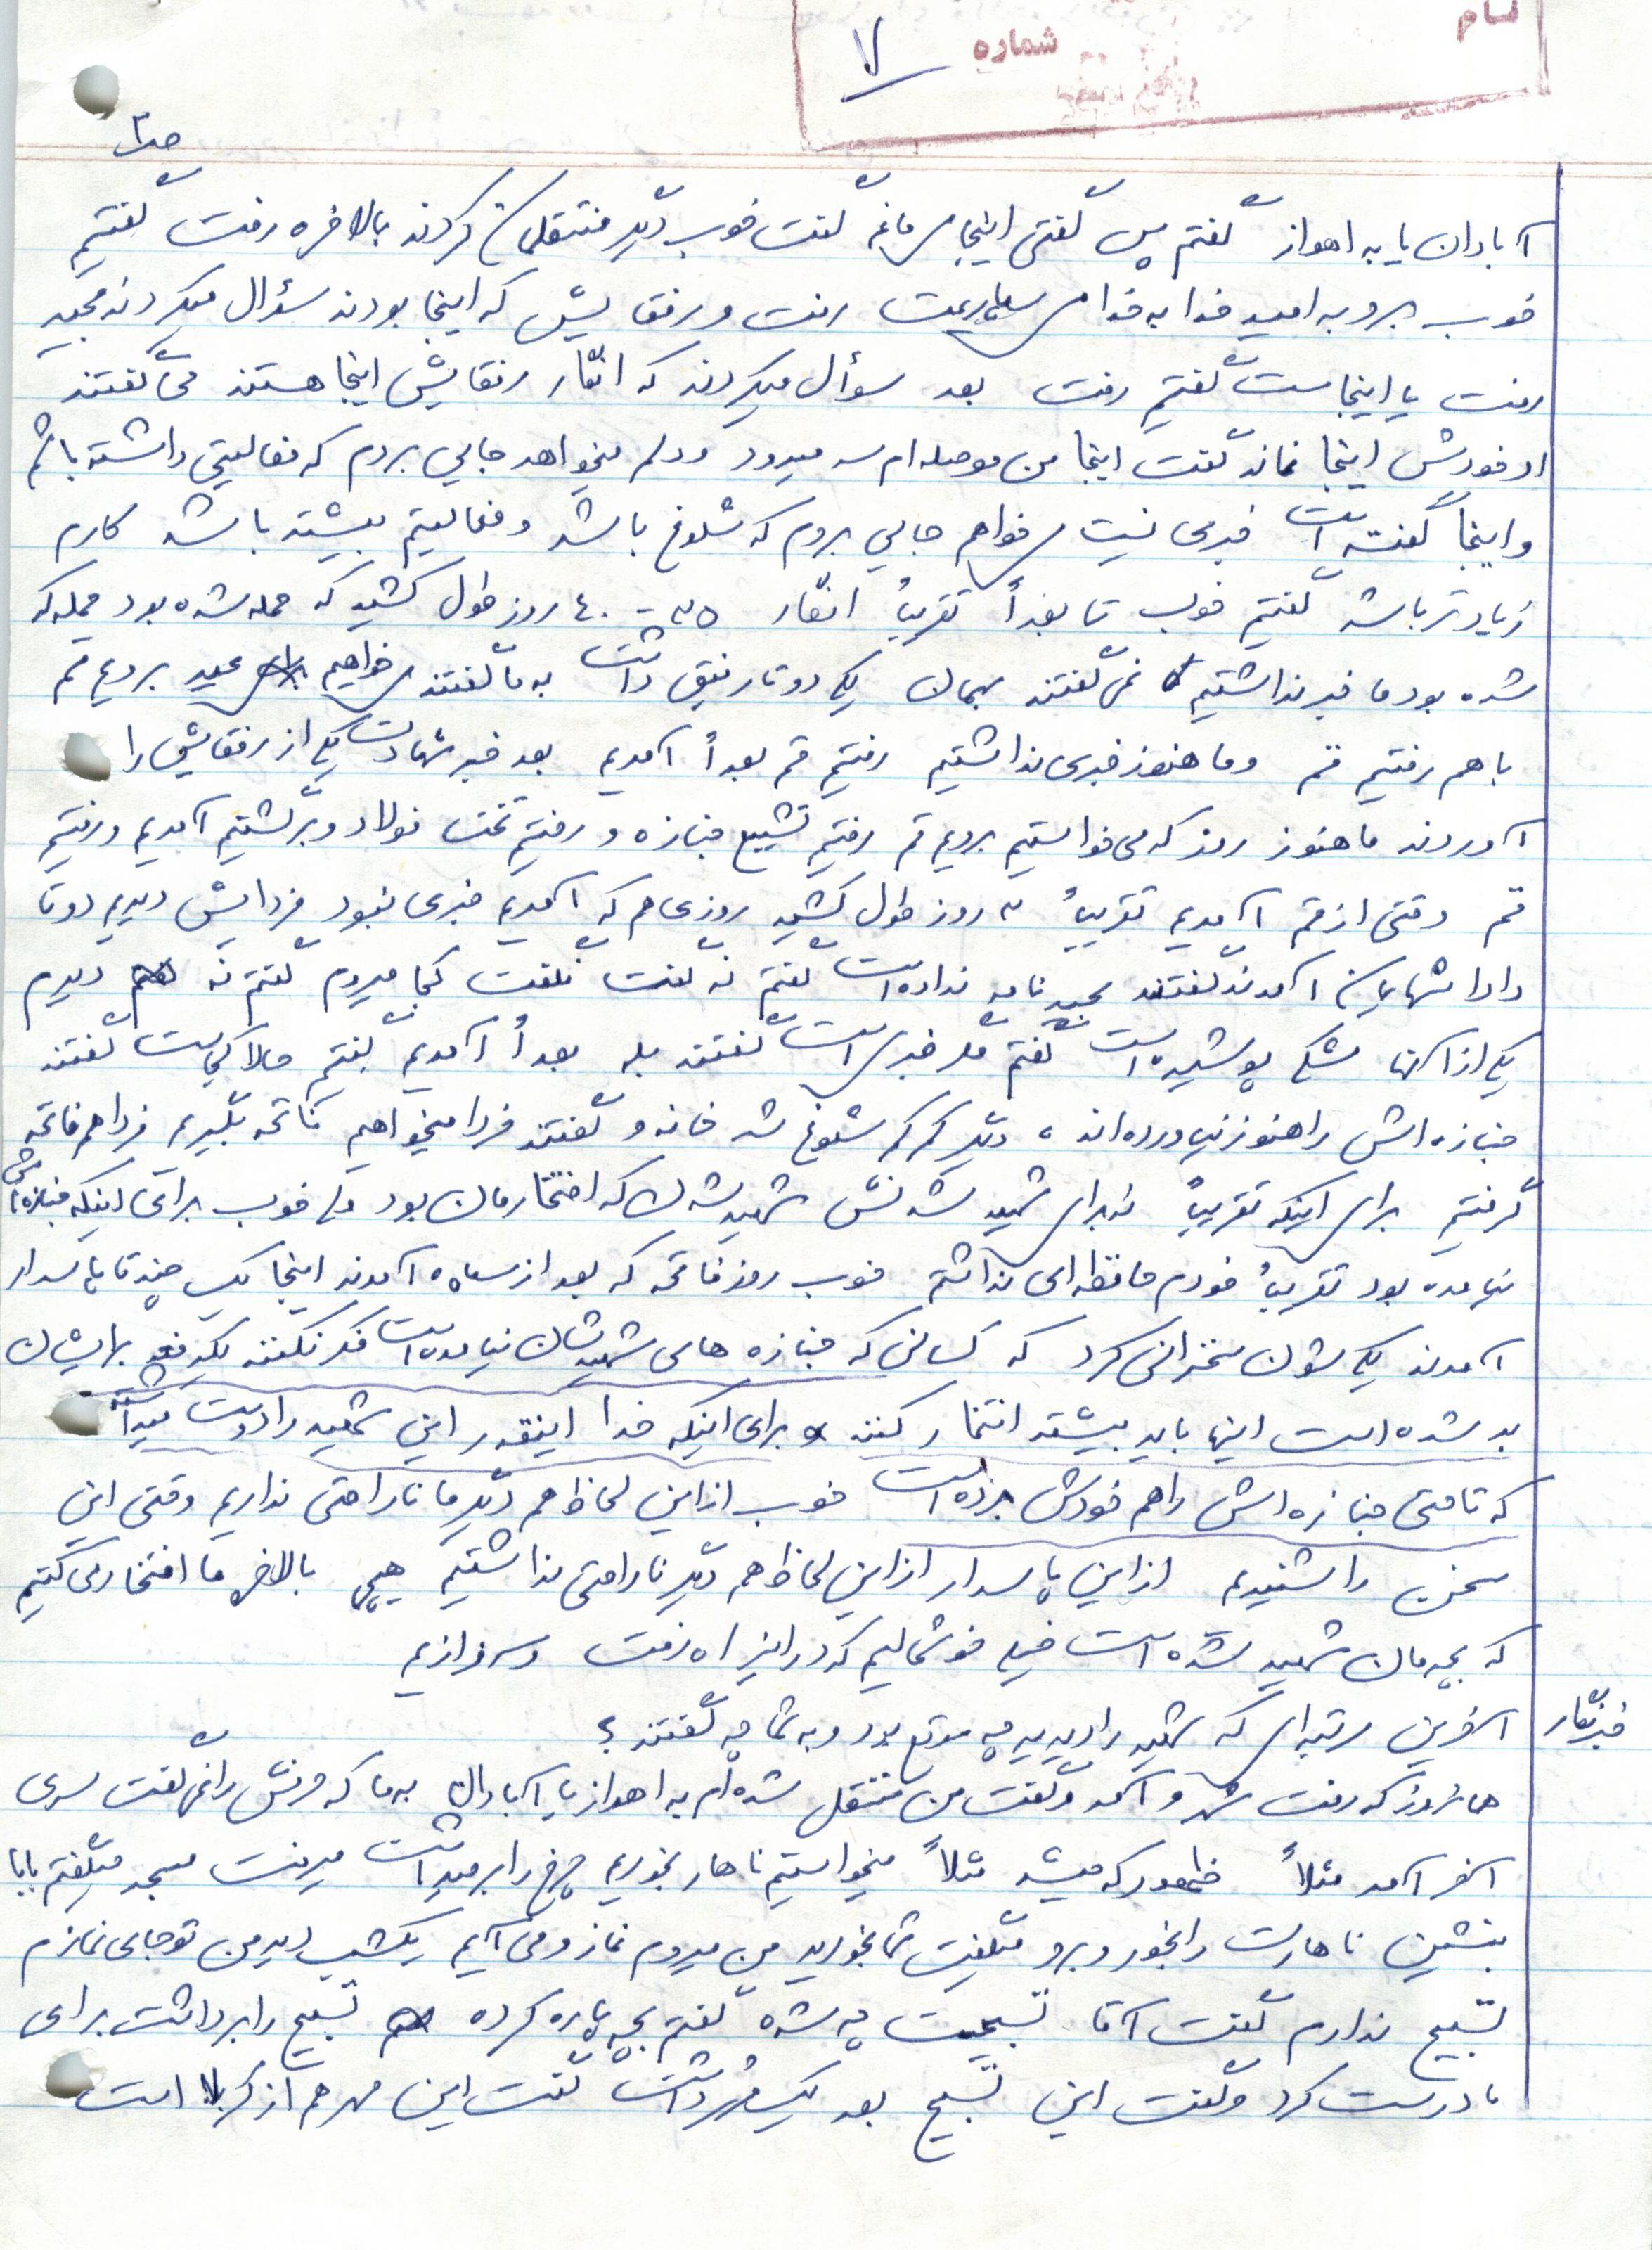 نام
شماره
۷
آبادان یا به اهواز گفتم پس گفتی اینجا گفت خوب دیگر منتقلمان کردند بالاخره رفت گفتیم
خوب برو به امید خدا به خدا رفت و رفقایش که اینجا بودند سؤال میکردند مجید
رفت یا اینجاست گفتیم رفت بعد سؤال میکردند که انگار رفقایش اینجا هستند می گفتند
او خودش اینجا نماند گفت اینجا من حوصله ام سر میرود و دلم میخواهد جایی بروم که فعالیتی داشته باشم
و اینجا گفته است خبری نیست خواهم جایی بروم که شلوغ باشد و فعالیتم بیشتر باشد کارم
زیادتر باشد گفتیم خوب تا بعداً تقریباً انگار ۳۵ - ۴۰ روز طول کشید که حمله شده بود حمله که
شده بود ما خبر نداشتیم نمی گفتند بهمان یکی دو تا رفیق داشت به ما گفتند خواهیم عید برویم قم
با هم رفتیم قم و ما هنوز خبری نداشتیم رفتیم قم بعداً آمدیم بعد خبر شهادت یکی از رفقایش را
آوردند ما هنوز روز که می خواستیم برویم قم رفتیم تشییع جنازه و رفتیم تخت فولاد و برگشتیم آمدیم و رفتیم
قم وقتی از قم آمدیم تقریباً ۳ روز طول کشید روزی هم که آمدیم خبری نبود فردایش دیدیم دو تا
داداشهایمان آمدند گفتند مجید نامه نداده است گفتم نه گفت نگفت کجا میروم گفتم نه دیدم
یکی از آنها مشکی پوشیده است گفتم مگر خبری است گفتند بله بعداً آمدیم گفتیم حالا کی است گفتند
جنازه اش را هنوز نیاورده اند، دیگر کم کم شلوغ شد خانه و گفتند فردا میخواهیم فاتحه بگیریم فردا هم فاتحه
گرفتیم برای اینکه تقریباً نه برای شهید شدنش شهید شدن که افتخارمان بود ولی خوب برای اینکه جنازه اش
نیامده بود تقریباً خودم حافظه ای نداشتم خوب روز فاتحه که بعد از سپاه آمدند اینجا یک چند تا پاسدار
آمدند یکی شون سخنرانی کرد که کسانی که جنازه های شهیدشان نیامده است فکر نکنند یک وقت برایشان
بد شده است اینها باید بیشتر افتخار کنند برای اینکه خدا اینقدر این شهید را دوست میداشته
که تا حتی جنازه اش را هم خودش برده است خوب از این لحاظ هم دیگر ما ناراحتی نداریم وقتی این
سخن را شنیدیم از این پاسدار از این لحاظ هم دیگر ناراحتی نداشتیم هیچی بالاخره ما افتخار می کنیم
که بچه مان شهید شده است خیلی خوشحالیم که در این راه رفت و سرفرازیم
خبرنگار آخرین مرتبه ای که شهید را دیدید چه موقع بود و به شما چه گفتند؟
همانروز که رفت و آمد و گفت من منتقل شده ام به اهواز یا آبادان به ما که حرفش را نمی گفت سری
آخر آمد مثلاً ظهور که میشد مثلاً میخواستیم ناهار بخوریم چرخ را برمیداشت میرفت مسجد میگفتم بابا
بنشین ناهارت را بخور و برو میگفت شما بخورید من میروم نماز و می آیم یکشب دید من تو جای نمازم
تسبیح ندارم گفت آقا تسبیحت چه شده گفتم بچه پاره کرده تسبیح را برداشت برای
ما درست کرد و گفت این تسبیح بعد یک مهر داشت گفت این مهر هم از کربلا است